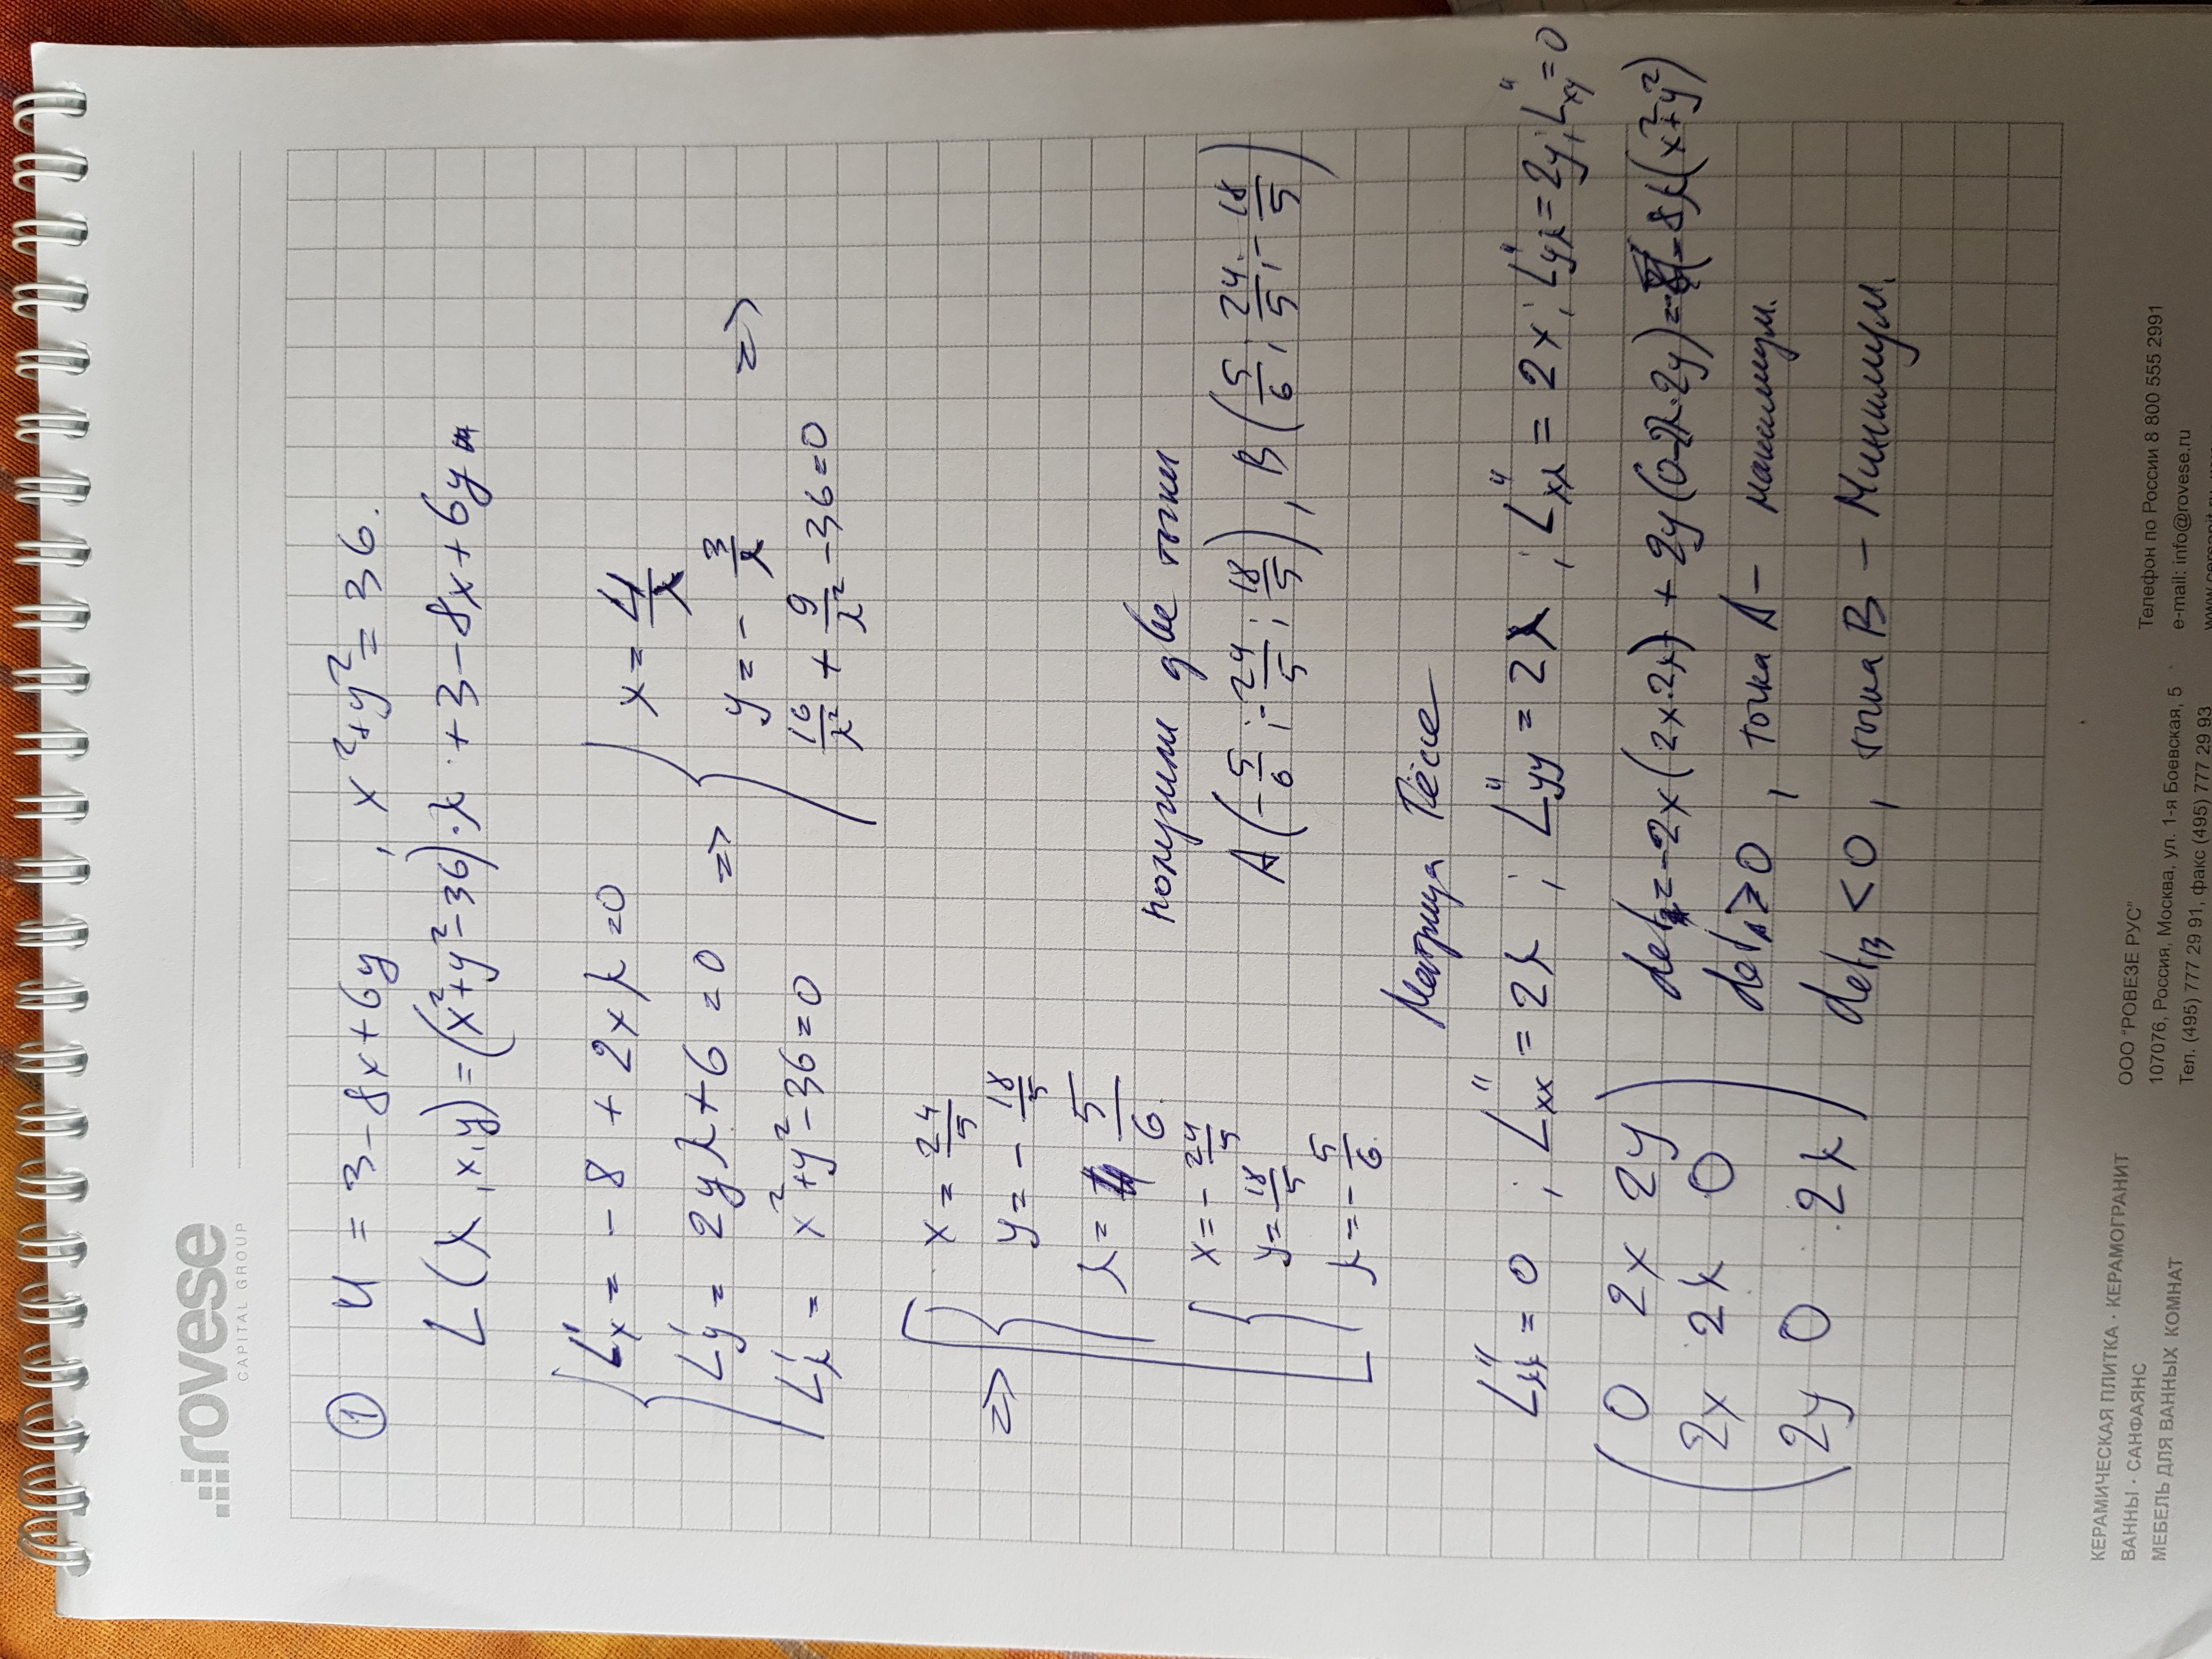 rovese
CAPITAL GROUP
① U = 3 - 8x + 6y , x² + y² = 36.
L(λ, x, y) = (x² + y² - 36)·λ + 3 - 8x + 6y
L'x = -8 + 2xλ = 0
L'y = 2yλ + 6 = 0
L'λ = x² + y² - 36 = 0
=>
x = 4/λ
y = - 3/λ
16/λ² + 9/λ² - 36 = 0
=>
=>
x = 24/5
y = - 18/5
λ = 5/6.
x = - 24/5
y = 18/5
λ = - 5/6.
получили две точки
A(-5/6; -24/5; 18/5), B(5/6; 24/5; -18/5)
Матрица Гёссе
L''λλ = 0 ; L''xx = 2λ ; L''yy = 2λ ; L''xλ = 2x ; L''yλ = 2y ; L''xy = 0
0 2x 2y
2x 2λ 0
2y 0 2λ
det = -2x(2x·2λ) + 2y(0-2λ·2y) = -8λ(x²+y²)
detA > 0 , точка A - максимум.
detB < 0 , точка B - Минимум.
КЕРАМИЧЕСКАЯ ПЛИТКА · КЕРАМОГРАНИТ
ВАННЫ · САНФАЯНС
МЕБЕЛЬ ДЛЯ ВАННЫХ КОМНАТ
ООО "РОВЕЗЕ РУС"
107076, Россия, Москва, ул. 1-я Боевская, 5
Тел. (495) 777 29 91, факс (495) 777 29 93
Телефон по России 8 800 555 2991
e-mail: info@rovese.ru